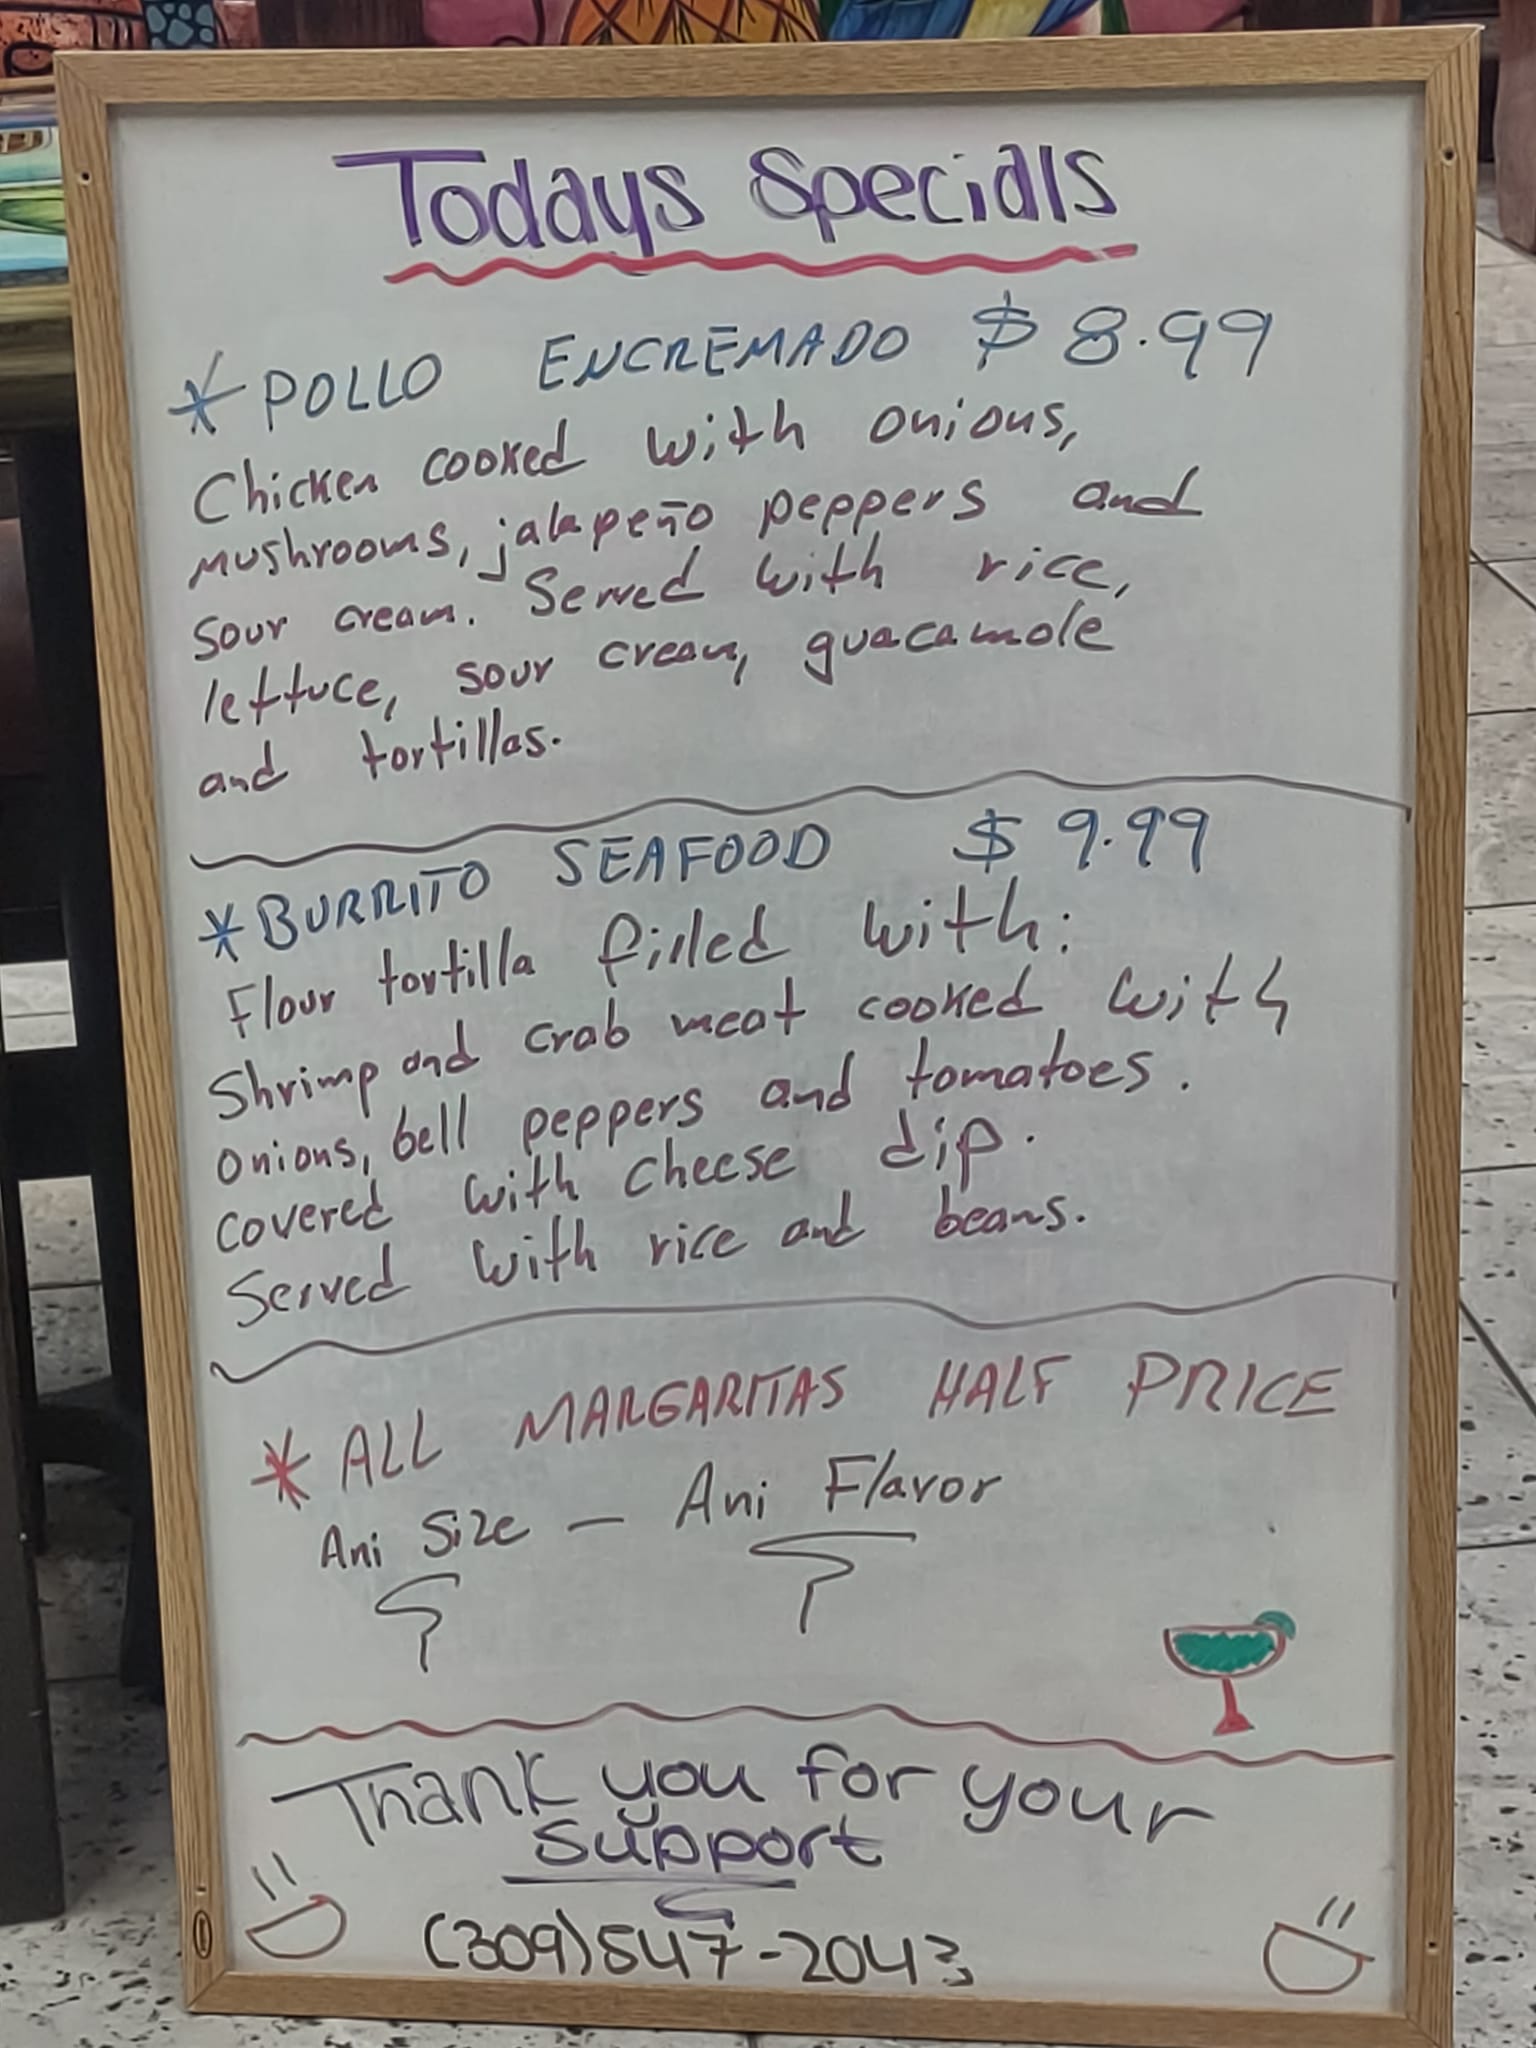 Todays Specials
* POLLO ENCREMADO $ 8.99
Chicken cooked with onions,
mushrooms, jalapeño peppers and
sour cream. Served with rice,
lettuce, sour cream, guacamole
and tortillas.
* BURRITO SEAFOOD $ 9.99
Flour tortilla filled with:
Shrimp and crab meat cooked with
onions, bell peppers and tomatoes.
covered with cheese dip.
Served with rice and beans.
* ALL MARGARITAS HALF PRICE
Ani Size - Ani Flavor
Thank you for your
support
(309)547-2043